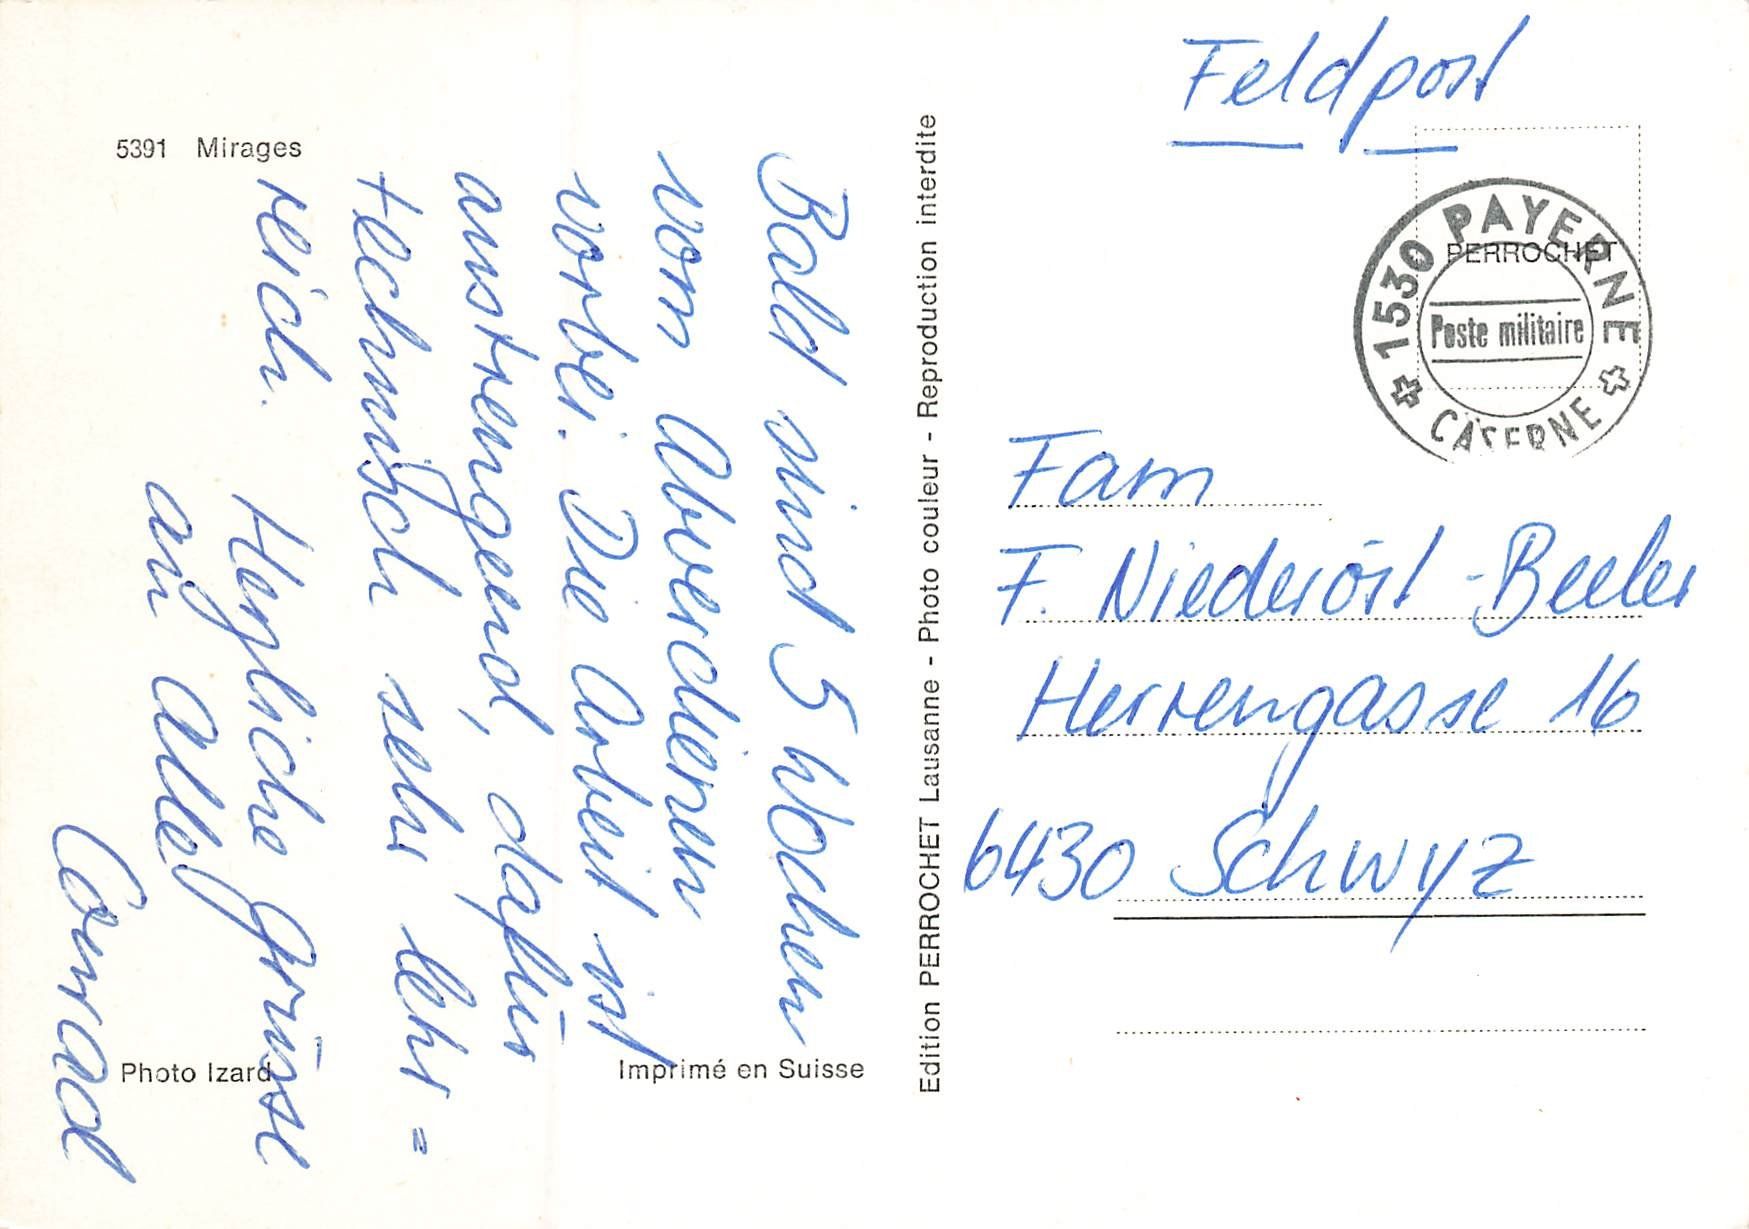 5391 Mirages
Bald sind 5 Wochen
vom Abverdienen
vorbei. Die Arbeit ist
anstrengend, dafür
technisch sehr lehr=
reich.
Herzliche Grüsse
an alle
Conrad
Photo Izard
Imprimé en Suisse
Edition PERROCHET Lausanne - Photo couleur - Reproduction interdite
Feldpost
PERROCHET
1530 PAYERNE
Poste militaire
CASERNE
Fam
F. Niederöst-Beeler
Herrengasse 16
6430 Schwyz